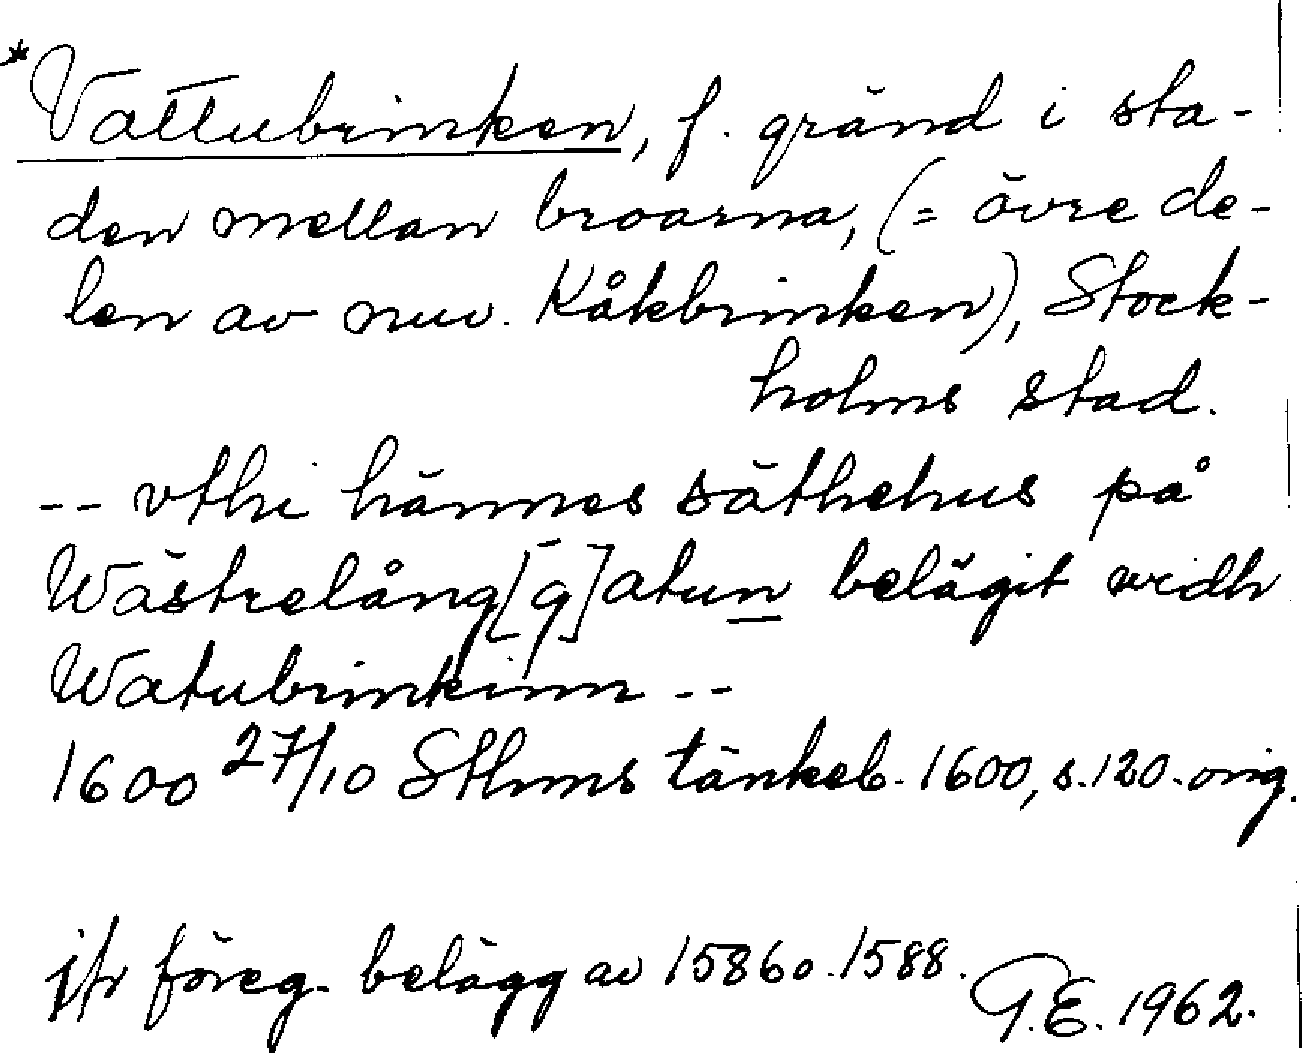 *Vattubrinken, f. gränd i sta-
den mellan broarna, (= övre de-
len av nuv. Kåkbrinken), Stock-
holms stad.
-- vthi hännes säthehus på
Wästrelång[g]atun belägit widh
Watubrinkinn --
1600 27/10 Sthms tänkeb. 1600, s. 120. orig.
jfr föreg. belägg av 1586 o. 1588.
G.E. 1962.